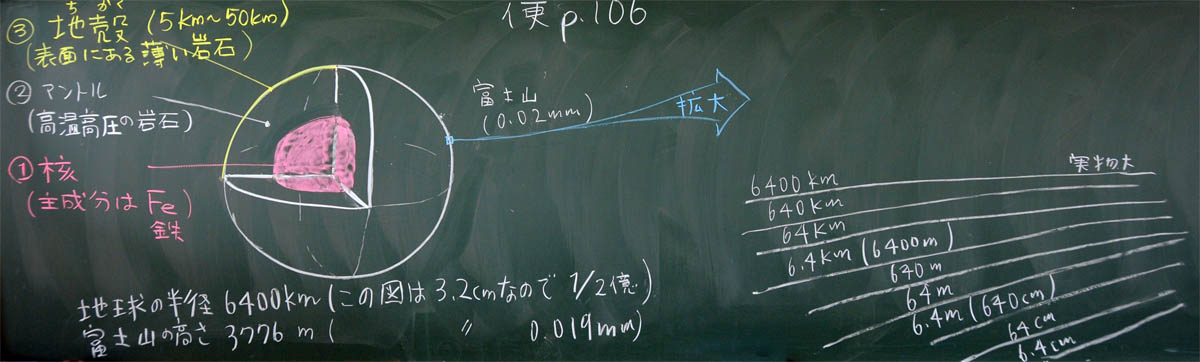 便p.106
ちかく
③ 地殻 (5km~50km)
(表面にある薄い岩石)
② マントル
(高温高圧の岩石)
① 核
(主成分は Fe)
鉄
富士山
(0.02mm)
拡大
実物大
6400km
640km
64km
6.4km (6400m)
640m
64m
6.4m (640cm)
64cm
6.4cm
地球の半径 6400km (この図は 3.2cmなので 1/2億)
富士山の高さ 3776 m ( 〃 0.019mm)